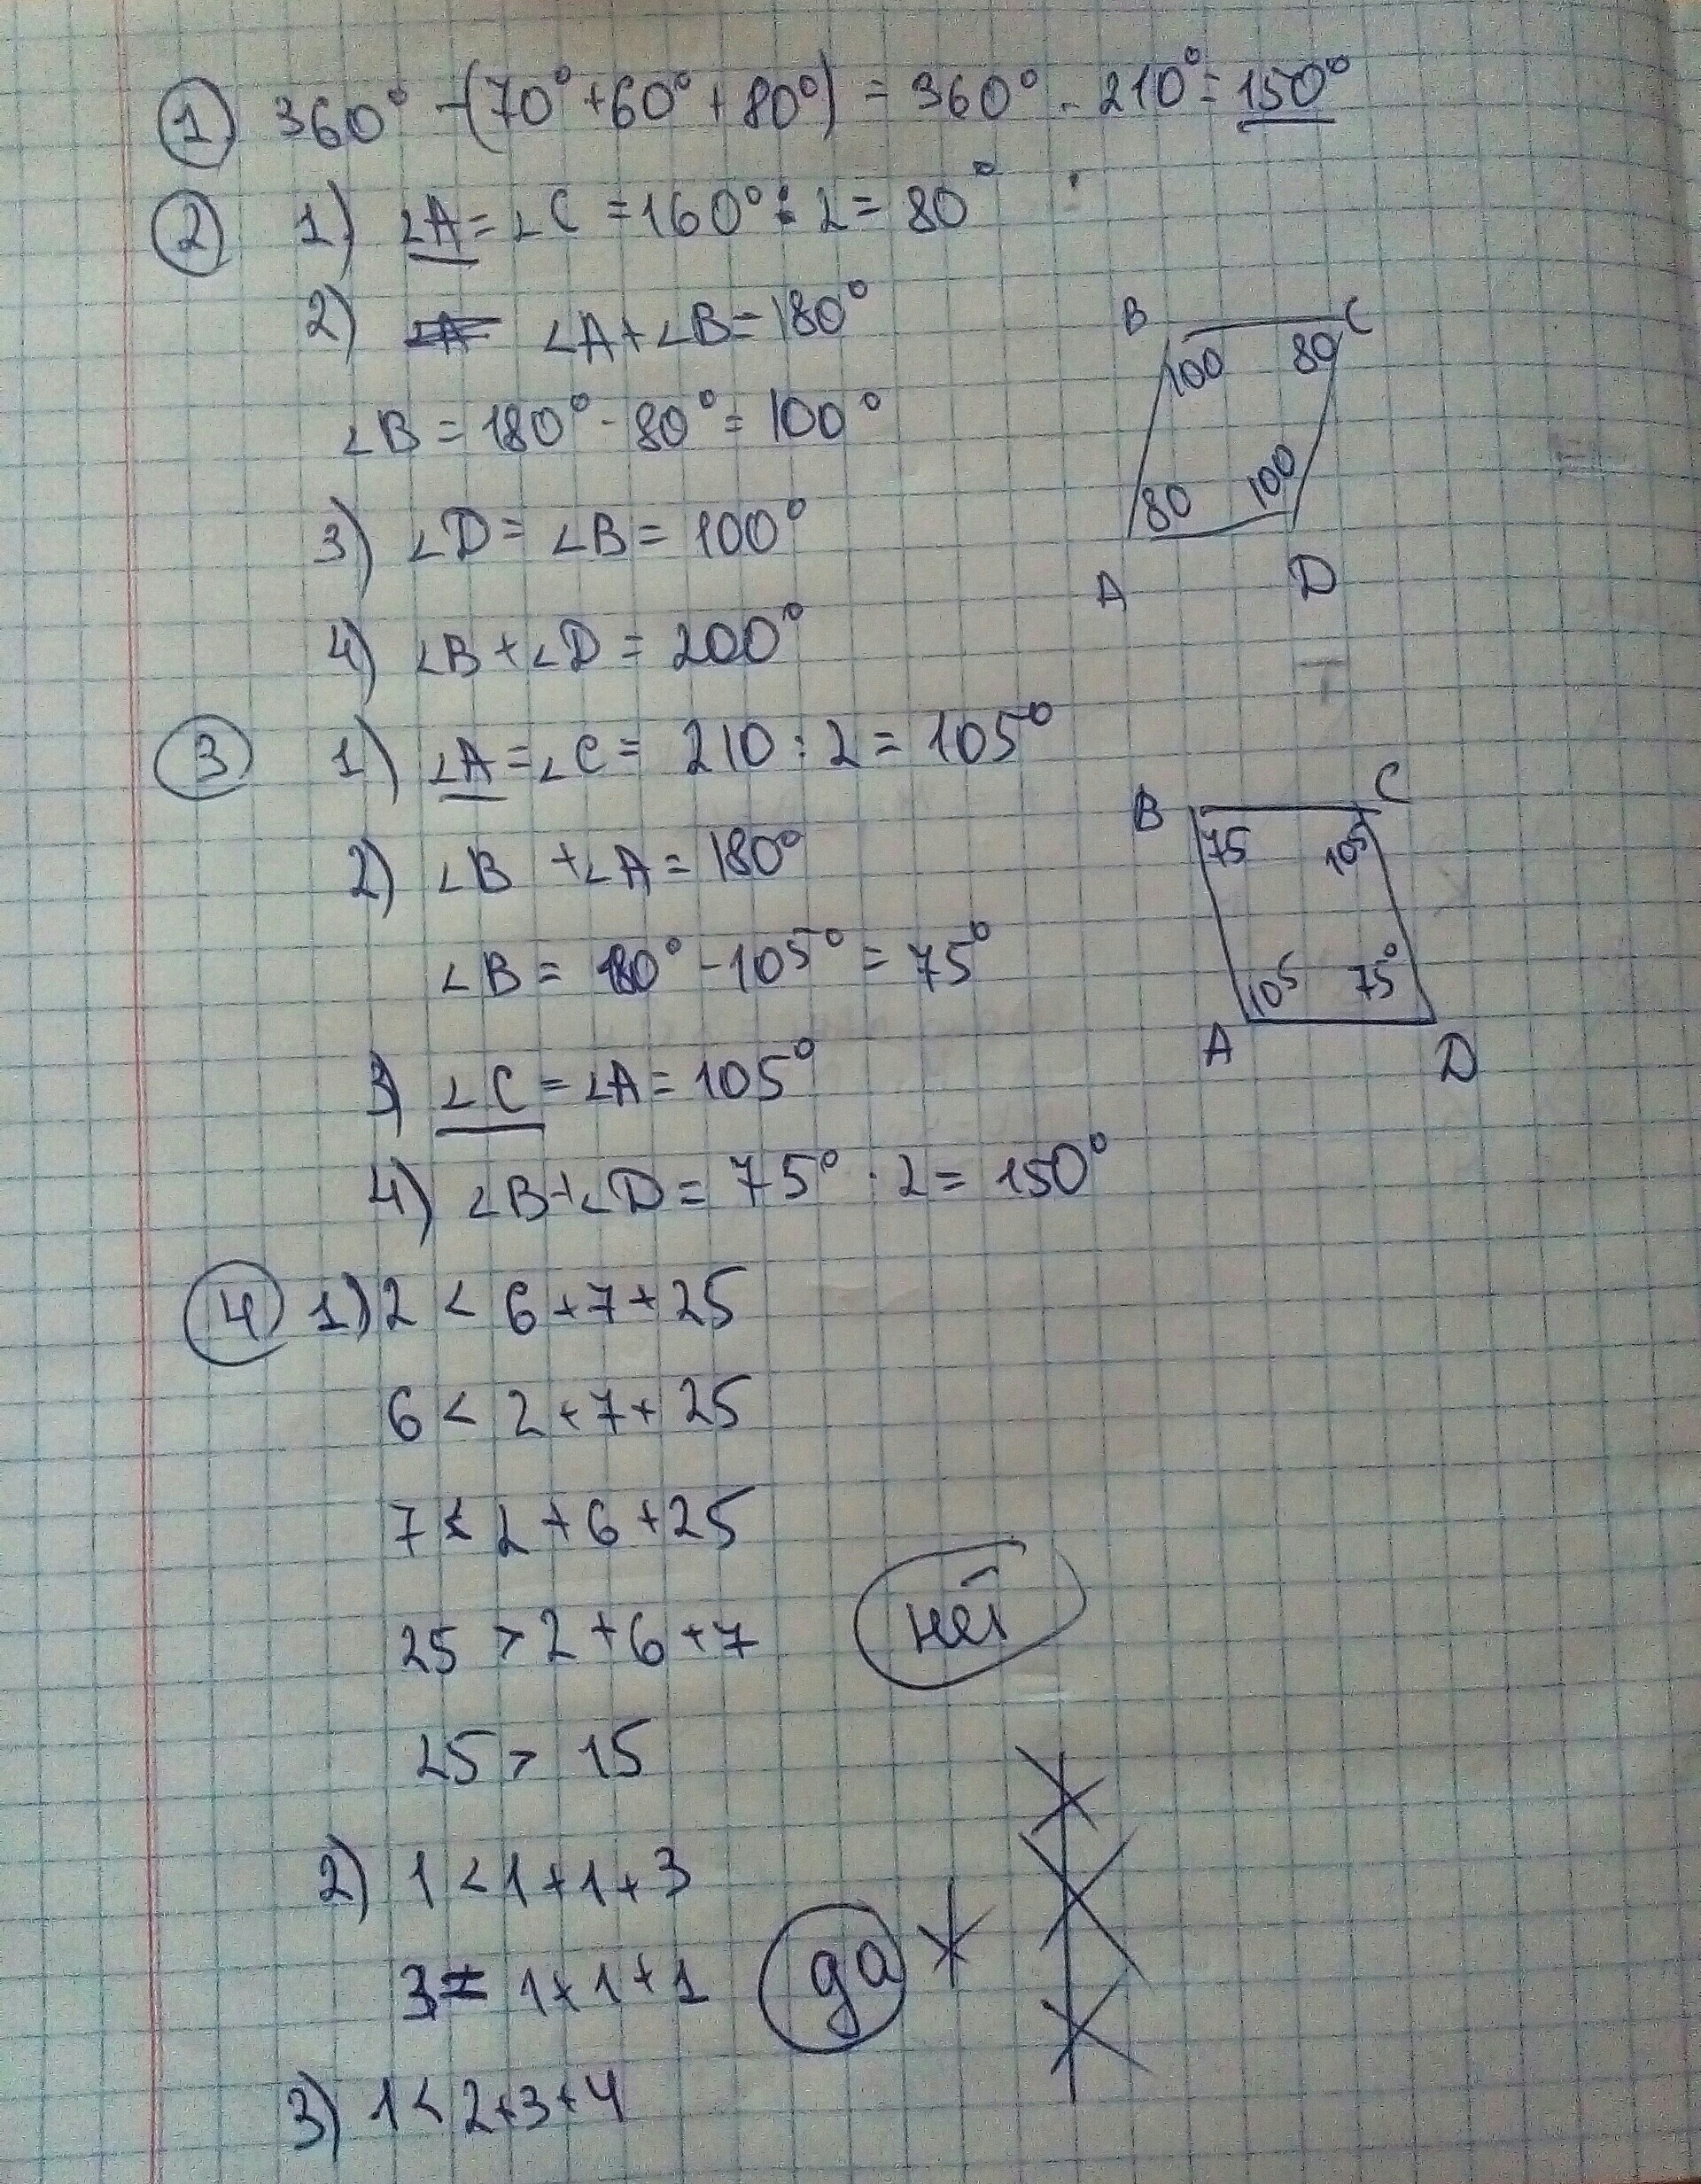 1 360° - (70° + 60° + 80°) = 360° - 210° = 150°
2 1) ∠A = ∠C = 160° : 2 = 80°
2) ∠A + ∠B = 180°
∠B = 180° - 80° = 100°
3) ∠D = ∠B = 100°
4) ∠B + ∠D = 200°
B C
100 80
80 100
A D
3 1) ∠A = ∠C = 210 : 2 = 105°
2) ∠B + ∠A = 180°
∠B = 180° - 105° = 75°
3) ∠C = ∠A = 105°
4) ∠B + ∠D = 75° · 2 = 150°
B C
75 105
105 75°
A D
4 1) 2 < 6 + 7 + 25
6 < 2 + 7 + 25
7 < 2 + 6 + 25
25 > 2 + 6 + 7 нет
25 > 15
2) 1 < 1 + 1 + 3
3 = 1 + 1 + 1 да
3) 1 < 2 + 3 + 4